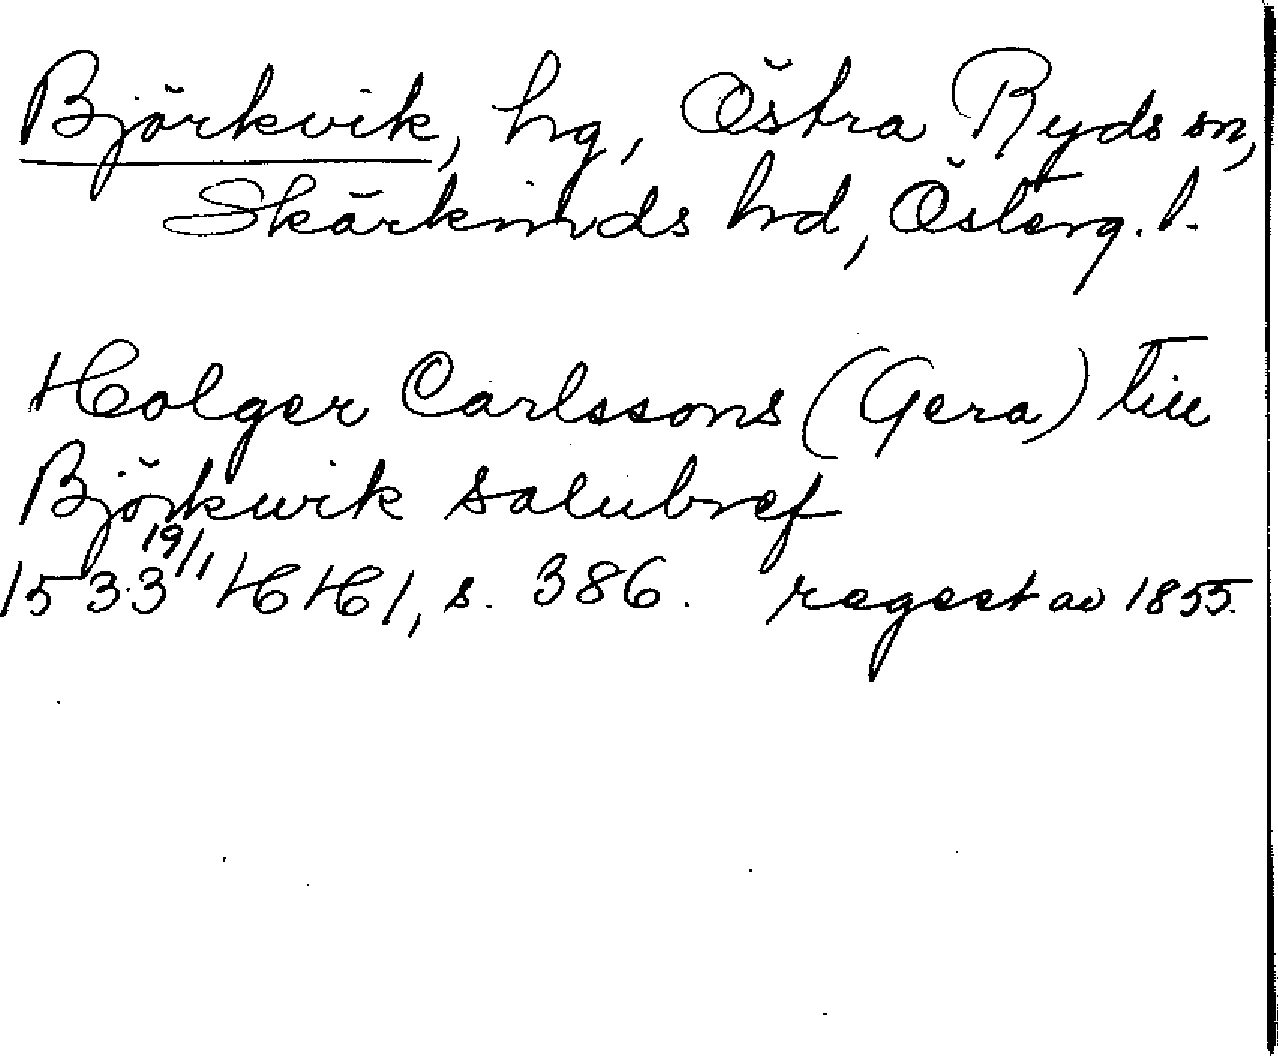 Björkvik, hg, Östra Ryds sn,
Skärkinds hd, Österg. l.
Holger Carlssons (Gera) till
Björkwik salubref
1533 19/1 HH 1, s. 386. regest av 1855.